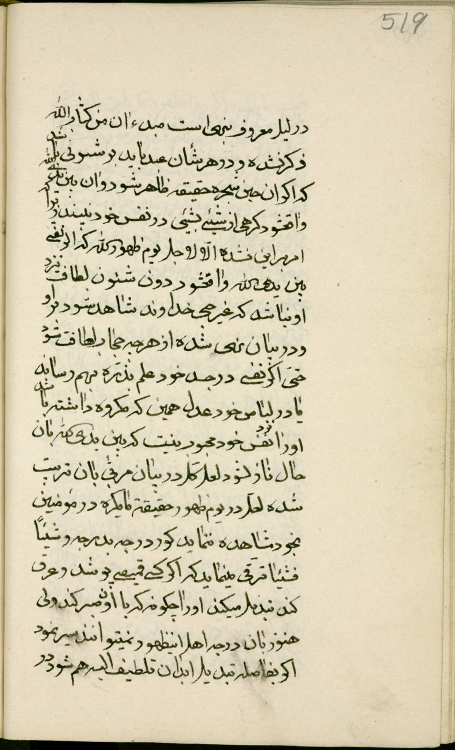 519
در لیل معروف بنهی است مبدء ان من کتاب الله
ذکر نشده و در هر شان عبد باید بر شئونی باشد
که اگر ان حین شجره حقیقة ظاهر شود و ان بین یدی الله
واقع شود کرهی از شیئی بشیئی در نفس خود نبیند و هیچ
امر براین نشده الا لاجل یوم ظهور الله که اگر نفسی
بین یدی الله واقع شود دون شئون لطافت نزد
او نباشد که غیر حجی خداوند شاهد شود بر او
و در بیان نهی شده از هر چه حجاب لطافت شود
حتی اگر نفسی در جسد خود علم بذره بهم رساند
یا در لباس خود عدل همین که مکروه داشته باشد
او را نفس خود محبوب نیست که بین یدی الله بان
حال نازل شود لعل کل در بیان مربی بان تربیت
شده لعل در یوم ظهور حقیقة مکره در مؤمنین
بخود مشاهده ننماید که در درجه بدرجه و شیئا
فشیئا ترقی مینماید که اگر کسی قمیصی پوشد و عرق
کند تبدیل میکند او را چگونه که با او صبر کند ولی
هنوز بان درجه اهل این ظهور نمیتوانند سیر نمود
اگر بفاصله تبدیل ابدان تلطیف البسه هم شود در